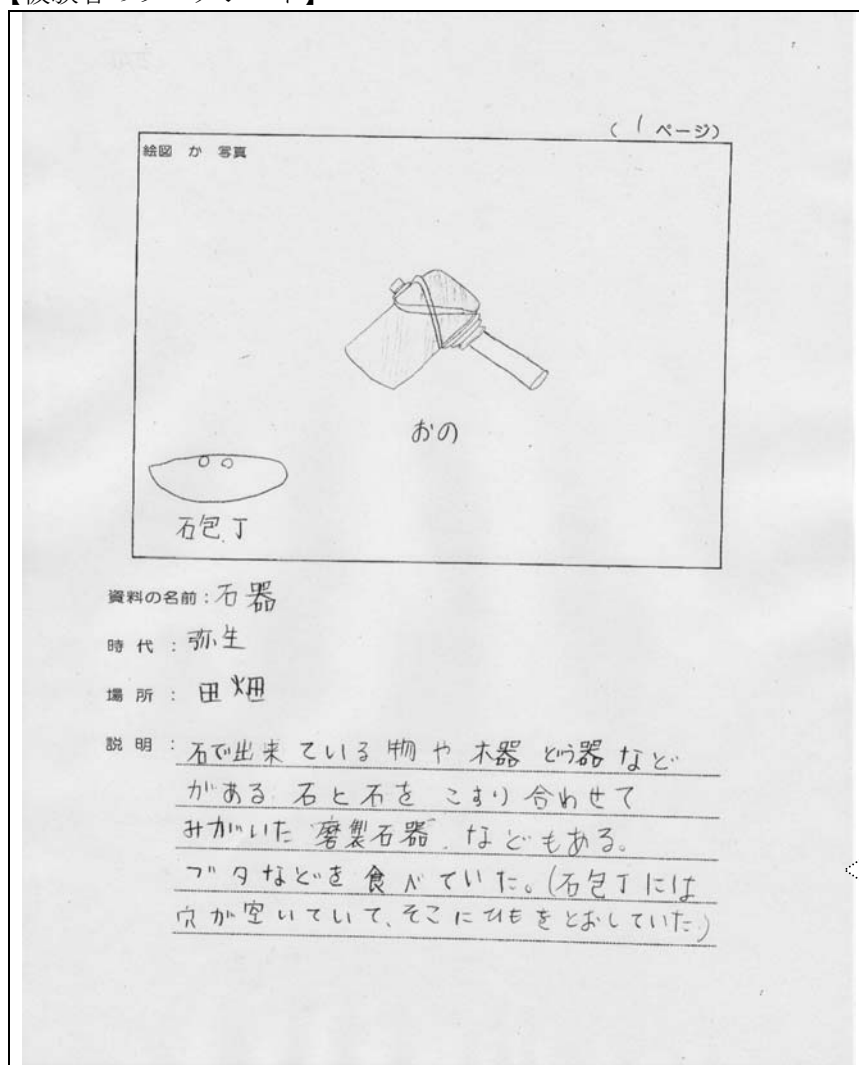 ( 1 ページ)
絵図 か 写真
おの
石包丁
資料の名前:石器
時 代 : 弥生
場 所 : 田畑
説 明 : 石で出来ている物や木器どう器など
がある 石と石をこすり合わせて
みがいた“磨製石器”などもある。
ブタなどを食べていた。(石包丁には
穴が空いていて、そこにひもをとおしていた)